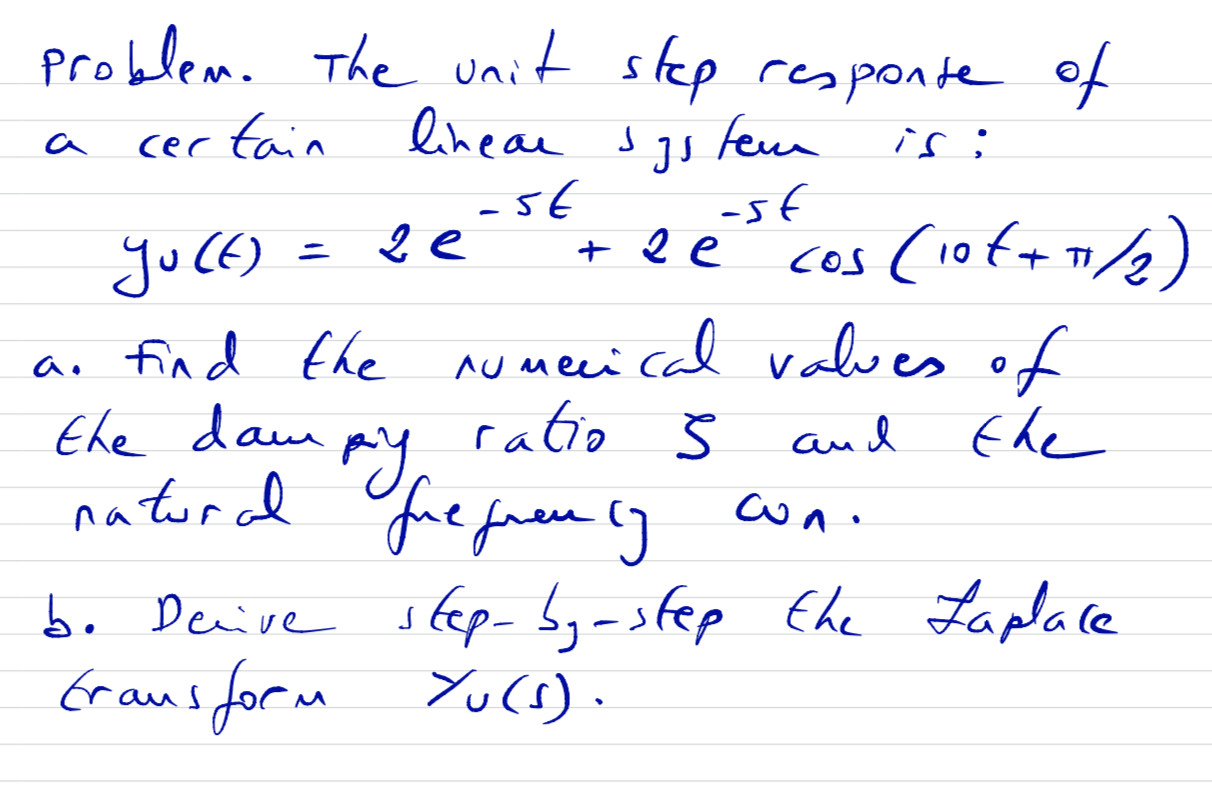 Problem. The unit step response of
a certain linear system is:
yu(t) = 2e^{-5t} + 2e^{-5t} cos(10t + π/2)
a. Find the numerical values of
the damping ratio ζ and the
natural frequency ωn.
b. Derive step-by-step the Laplace
transform Yu(s).